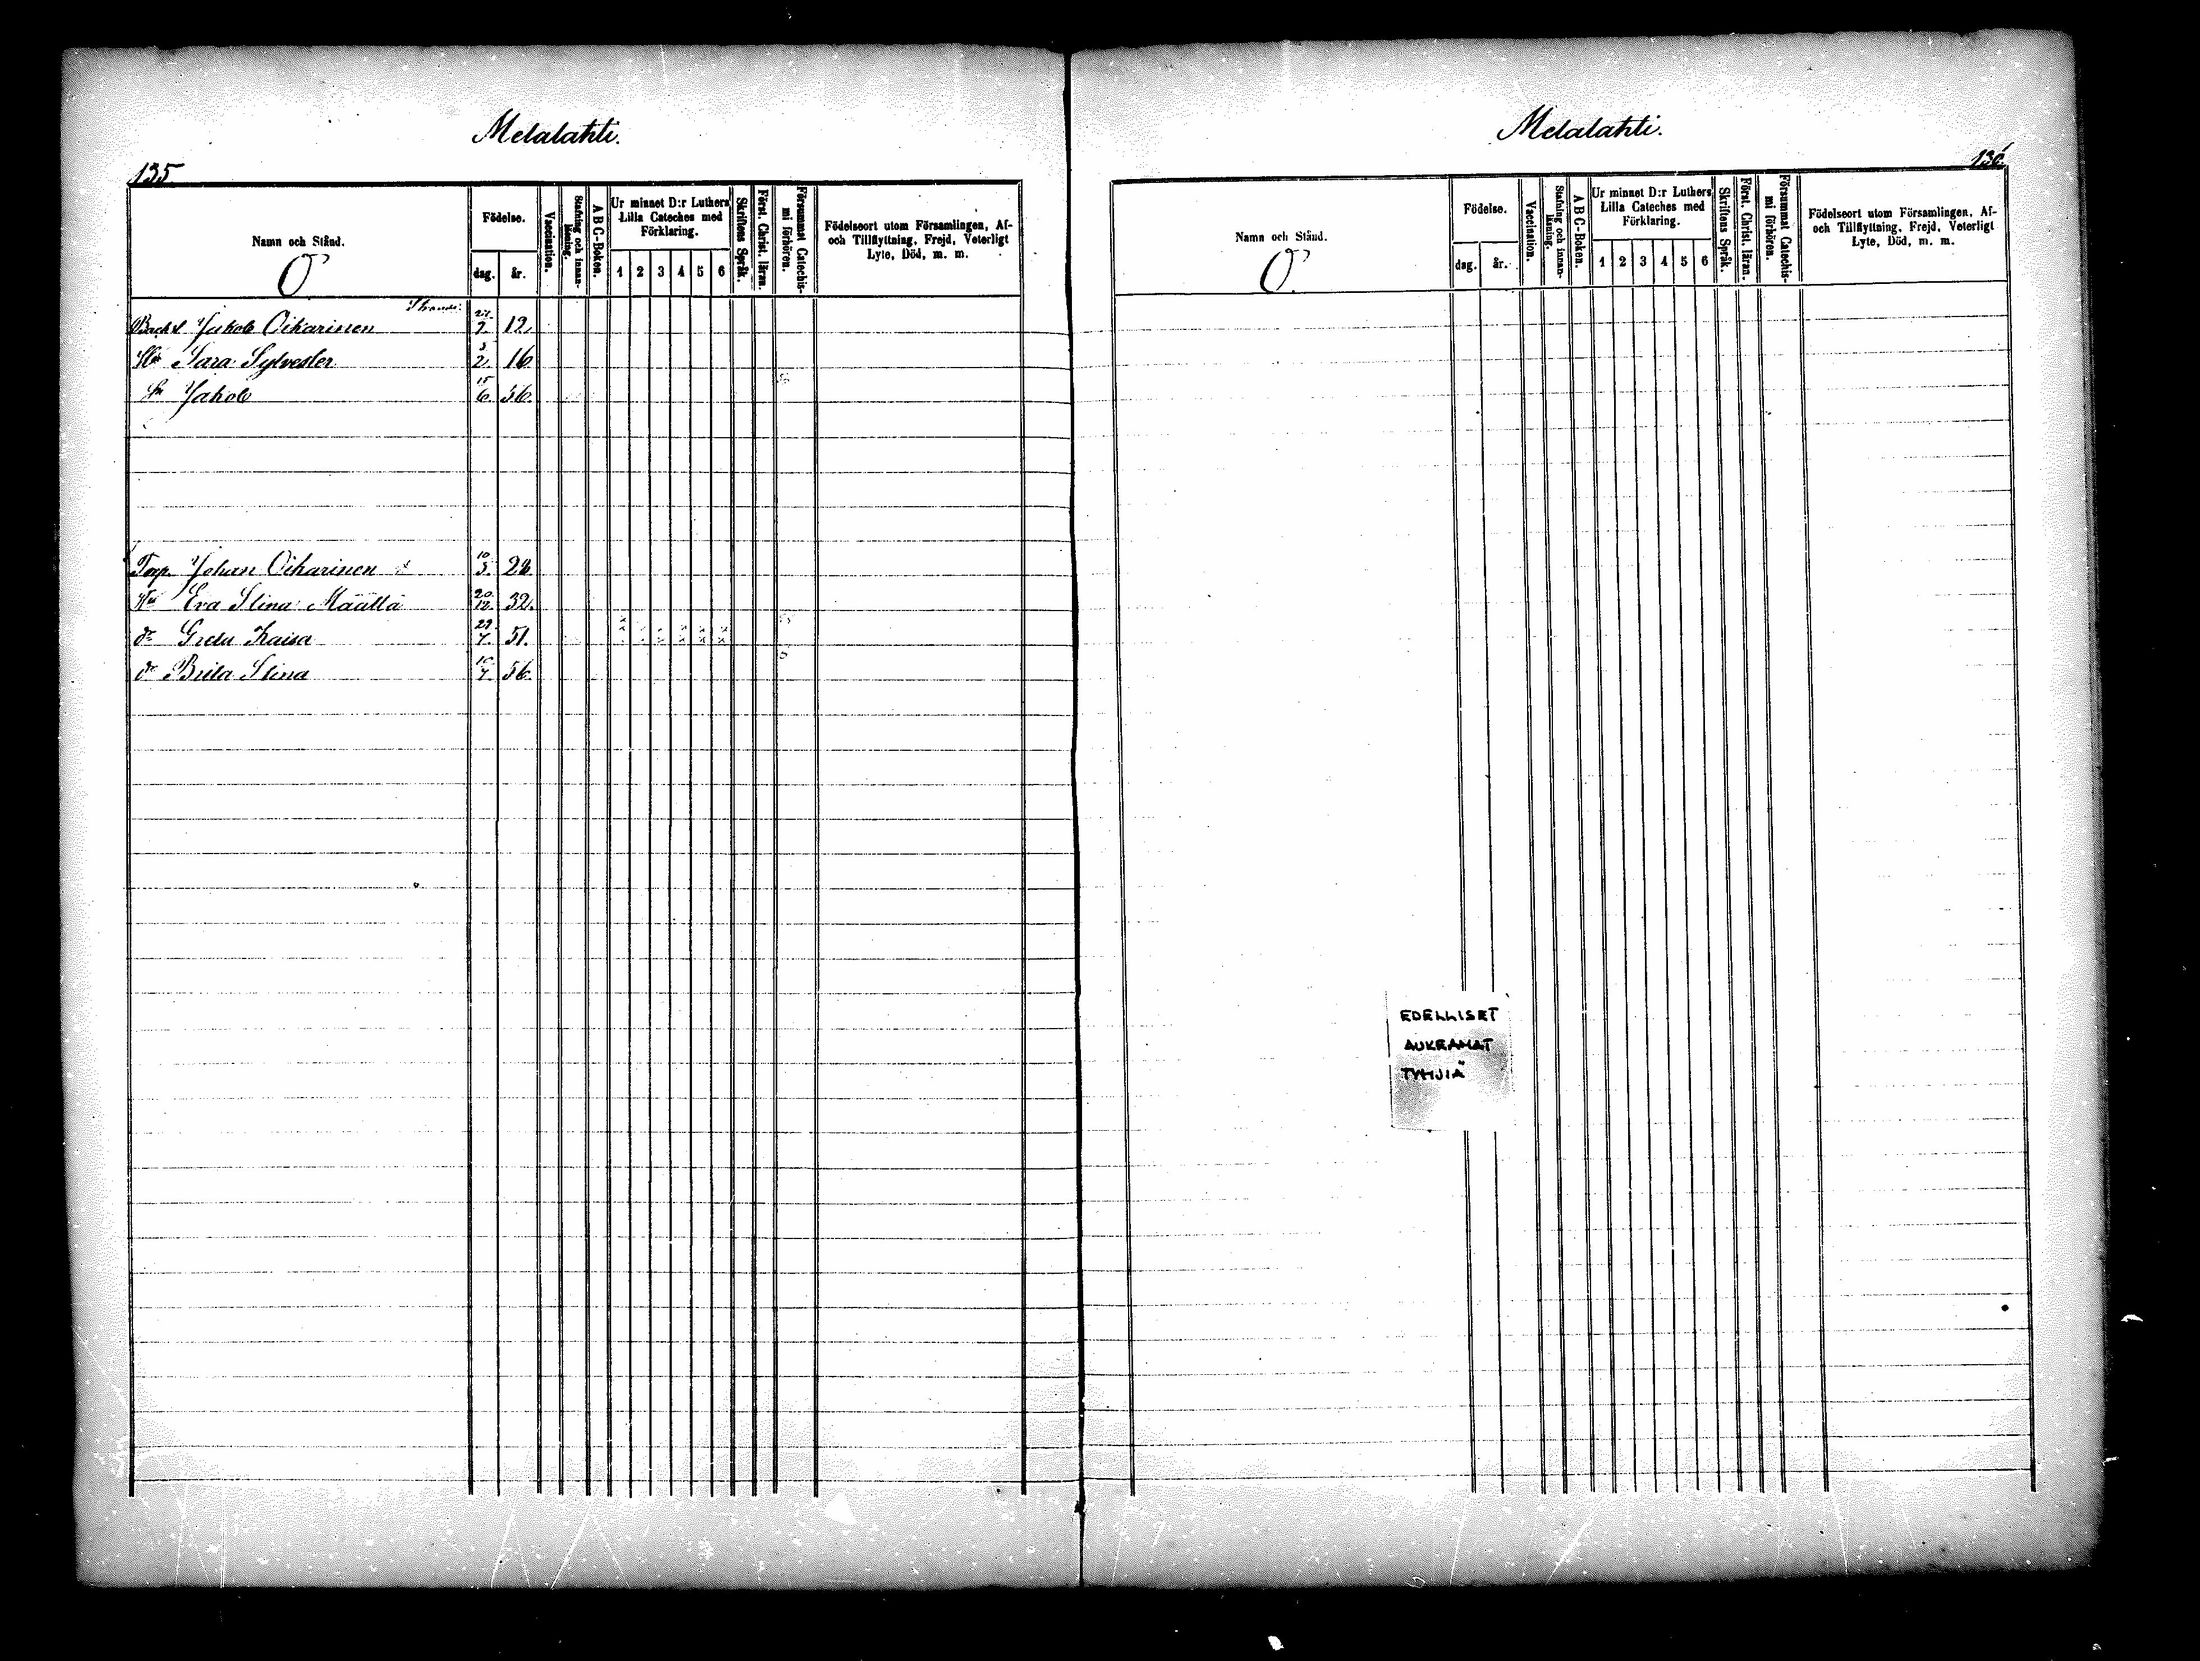 Melalahti.
135.
Namn och Stånd.
O
Födelse.
dag. år.
Vaccination.
Stafning och innanläsning.
A B C-Boken.
Ur minnet D:r Luthers Lilla Cateches med Förklaring.
1 2 3 4 5 6
Skriftens Språk.
Först. Christ. läran.
Försummat Catechismi förhören.
Födelseort utom Församlingen, Af- och Tillflyttning, Frejd, Veterligt Lyte, Död, m. m.
Jakob Oikarinen 27. 7. 12.
Hu Sara Sylvester 2. 16.
Sn Jakob 15 6. 56.
Torp. Johan Oikarinen 10 5. 28.
Hu Eva Stina Määttä 20. 12. 32.
dr Greta Kaisa 29. 7. 51.
dr Brita Stina 7. 56.
Melalahti.
136.
Namn och Stånd.
O.
Födelse.
dag. år.
Vaccination.
Stafning och innanläsning.
A B C-Boken.
Ur minnet D:r Luthers Lilla Cateches med Förklaring.
1 2 3 4 5 6
Skriftens Språk.
Först. Christ. läran.
Försummat Catechismi förhören.
Födelseort utom Församlingen, Af- och Tillflyttning, Frejd, Veterligt Lyte, Död, m. m.
EDELLISET
AUKEAMAT
TYHJIÄ